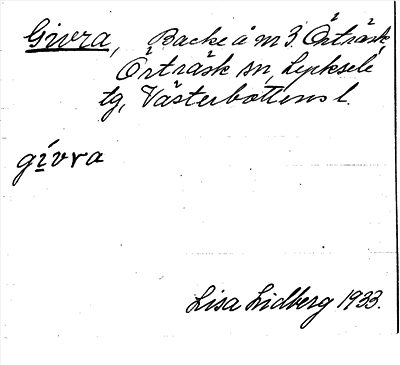 Givra, Backe å m 3. Örträsk,
Örträsk sn, Lycksele
tg, Västerbottens l.
givra
Lisa Lidberg 1933.